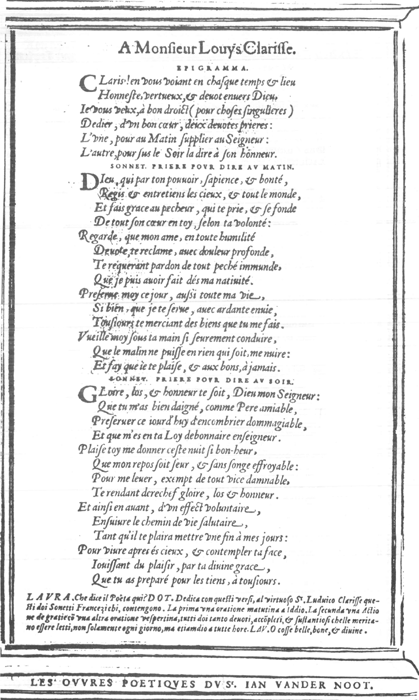 A Monsieur Louys Clarisse.
EPIGRAMMA.
CLaris! en vous voiant en chasque temps & lieu
Honneste, vertueux, & devot envers Dieu,
Ie vous veux, à bon droict (pour choses singulieres)
Dedier, d'vn bon cœur, deux devotes prieres:
L'vne, pour au Matin supplier au Seigneur:
L'autre, pour sus le Soir la dire à son honneur.
SONNET. PRIERE POVR DIRE AV MATIN.
DIeu, qui par ton pouvoir, sapience, & bonté,
Regis & entretiens les cieux, & tout le monde,
Et fais grace au pecheur, qui te prie, & se fonde
De tout son cœur en toy, selon ta volonté:
Regarde, que mon ame, en toute humilité
Devote, te reclame, avec douleur profonde,
Te requerant pardon de tout peché immunde,
Que je puis avoir fait dés ma nativité.
Preserve moy ce jour, aussi toute ma vie,
Si bien, que je te serve, avec ardante envie,
Tousjours te merciant des biens que tu me fais.
Vueille moy sous ta main si seurement conduire,
Que le malin ne puisse en rien qui soit, me nuire:
Et fay que je te plaise, & aux bons, à jamais.
SONNET. PRIERE POVR DIRE AV SOIR.
GLoire, los, & honneur te soit, Dieu mon Seigneur:
Que tu m'as bien daigné, comme Pere amiable,
Preserver ce iourd'huy d'encombrier dommagiable,
Et que m'es en ta Loy debonnaire enseigneur.
Plaise toy me donner ceste nuit si bon-heur,
Que mon repos soit seur, & sans songe effroyable:
Pour me lever, exempt de tout vice damnable,
Te rendant derechef gloire, los & honneur.
Et ainsi en avant, d'vn effect voluntaire,
Ensuivre le chemin de vie salutaire,
Tant qu'il te plaira mettre vne fin à mes jours:
Pour vivre apres és cieux, & contempler ta face,
Iouissant du plaisir, par ta divine grace,
Que tu as preparé pour les tiens, à tousjours.
LAVRA. Che dice il Poëta quì? DOT. Dedica con questi versi, al virtuoso Sr. Ludvico Clarisse que-
sti doi Sonetti Franczeschi, contengono. La prima vna oratione matutina a Iddio. La secunda vna Actio
ne de gratie vna altra oratione vespertina, tutti doi tanto devoti, accõpleti, & sustantiosi che le merita-
no essere letti, non solamente ogni giorno, ma etiamdio a tutte hore. LAV. O cosse belle, bone, & divine.
LES OVVRES POETIQVES DV Sr. IAN VANDER NOOT.